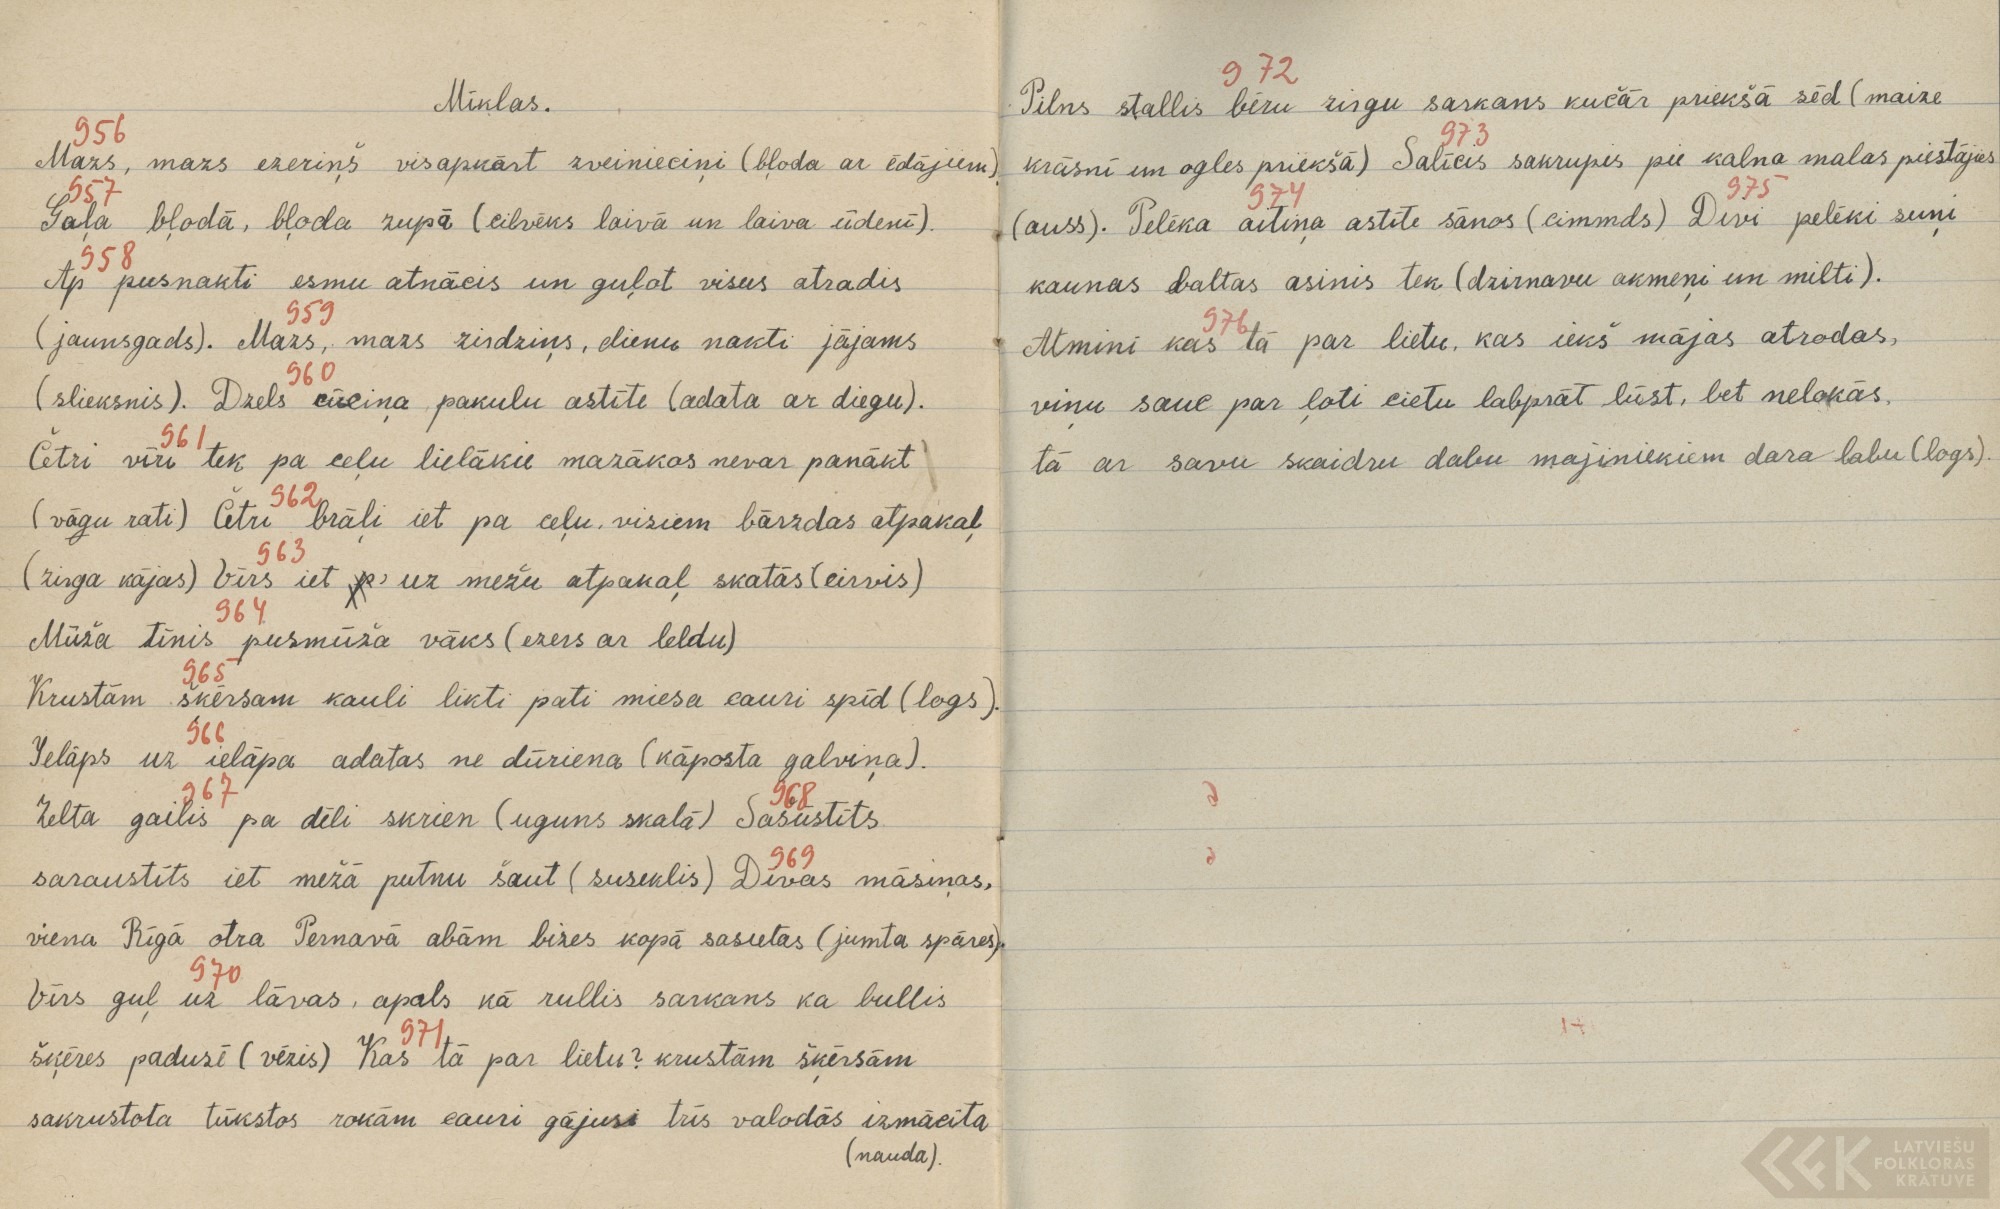 Mīklas.
956
Mazs, mazs ezeriņš visapkārt zveinieciņi (bļoda ar ēdājiem)
957
Gaļa bļodā, bļoda zupā (cilvēks laivā un laiva ūdenī).
958
Ap pusnakti esmu atnācis un guļot visus atradis
959
(jaunsgads). Mazs, mazs zirdziņs, dienu nakti jājams
960
(slieksnis). Dzels cūciņa pakulu astīte (adata ar diegu).
961
Četri vīri tek pa ceļu lielākie mazākos nevar panākt
962
(vāgu rati) Četri brāļi iet pa ceļu, visiem bārzdas atpakaļ
963
(zirga kājas) Vīrs iet uz mežu atpakaļ skatās (cirvis)
964
Mūža tīnis pusmūža vāks (ezers ar leldu)
965
Krustām šķērsam kauli likti pati miesa cauri spīd (logs).
966
Ielāps uz ielāpa adatas ne dūriena (kāposta galviņa).
967 968
Zelta gailis pa dēli skrien (uguns skalā) Sašustīts
969
saraustīts iet mežā putnu šaut (suseklis) Divas māsiņas,
viena Rīgā otra Pernavā abām bizes kopā sasietas (jumta spāres).
970
Vīrs guļ uz lāvas, apals kā rullis sarkans ka bullis
971
šķēres padusē (vēzis) Kas tā par lietu? krustām šķērsām
sakrustota tūkstos rokām cauri gājusi trīs valodās izmācīta
(nauda).
972
Pilns stallis bēru zirgu sarkans kučār priekšā sēd (maize
973
krāsnī un ogles priekšā) Salīcis sakrupis pie kalna malas piestājies
974 975
(auss). Pelēka aitiņa astīte sānos (cimmds) Divi pelēki suņi
kaunas baltas asinis tek (dzirnavu akmeņi un milti).
976
Atminī kas tā par lietu, kas iekš mājas atrodas,
viņu sauc par ļoti cietu labprāt lūst, bet nelokās,
tā ar savu skaidru dabu majiniekiem dara labu (logs).
LATVIEŠU
FOLKLORAS
KRATUVE